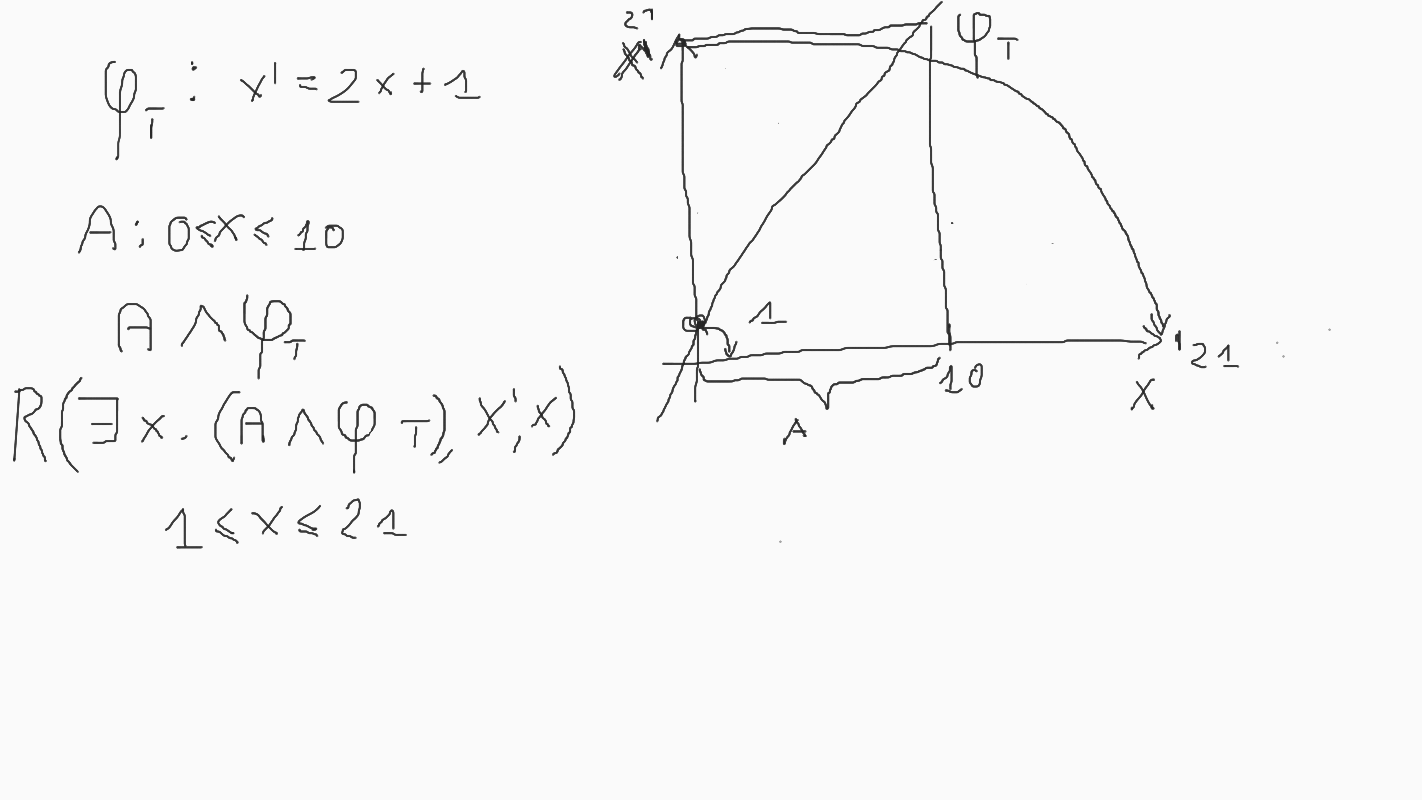 φ_T : x' = 2x + 1
A : 0 ≤ x ≤ 10
A ∧ φ_T
R(∃x. (A ∧ φ_T), x', x)
1 ≤ x ≤ 21
21
φ_T
1
10
21
X
A